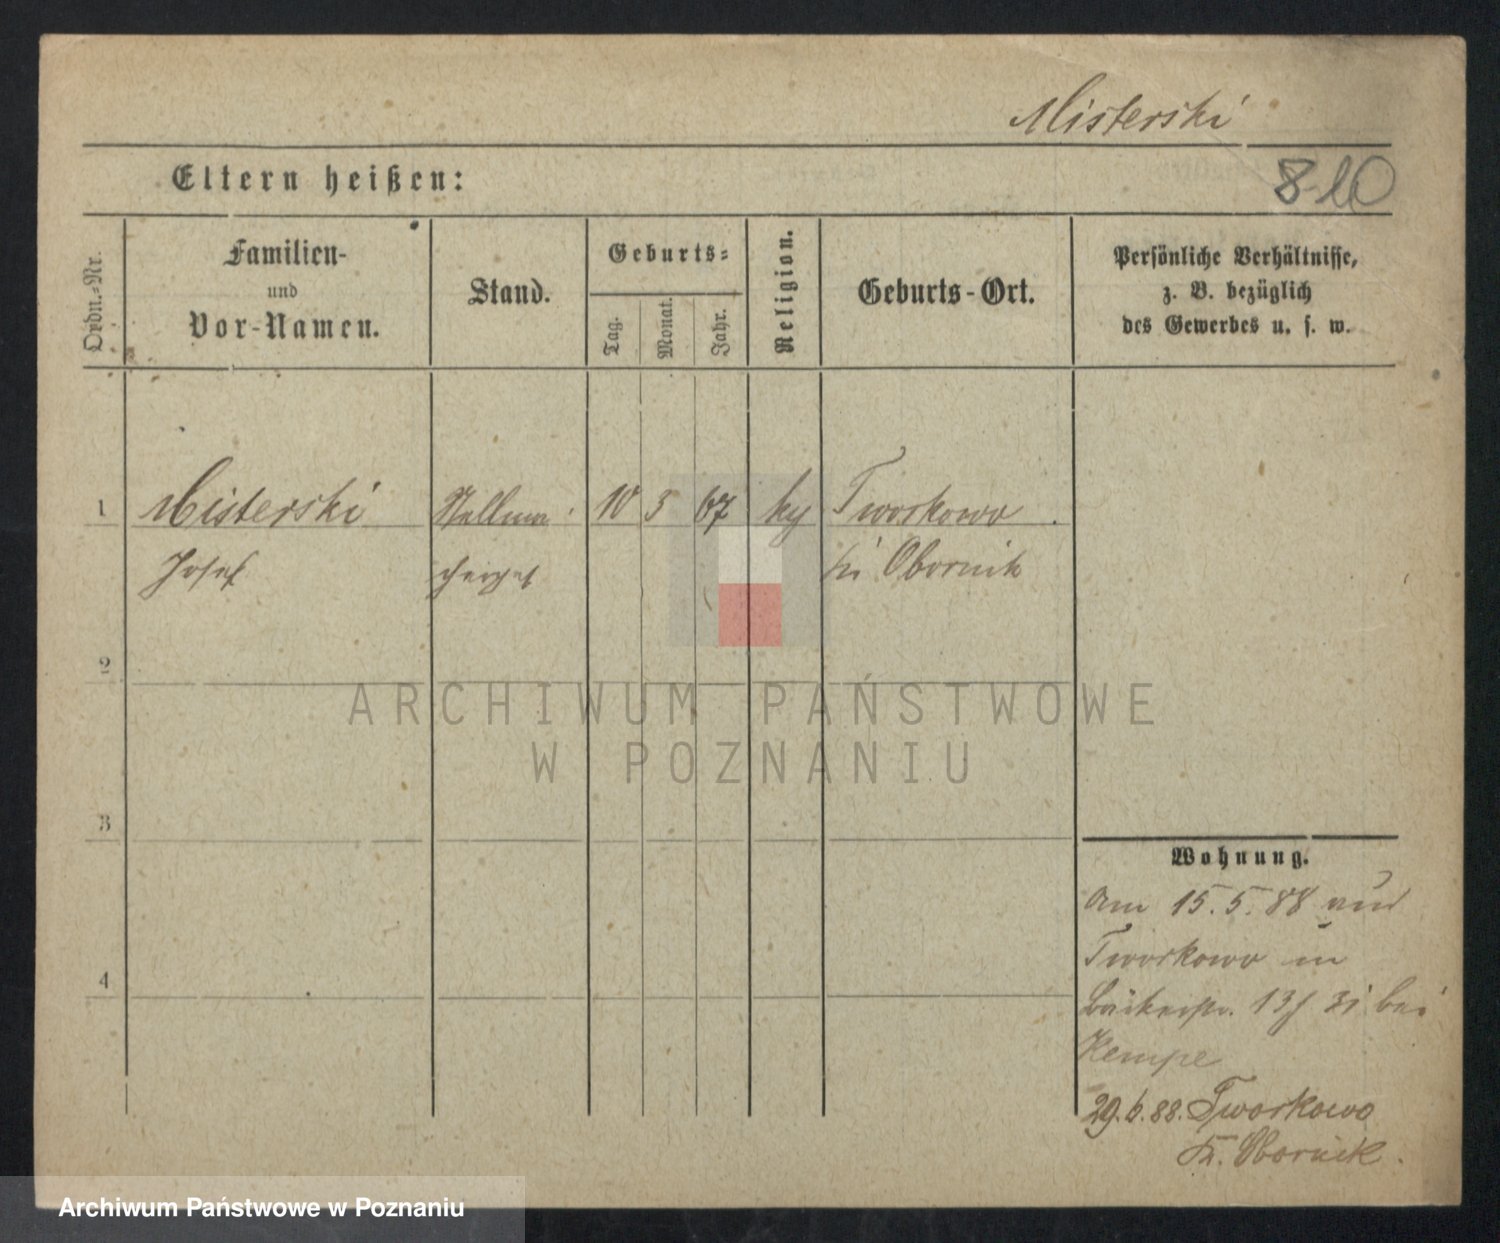 Misterski
Eltern heißen:
810
Ordn.-Nr.
Familien-
und
Vor-Namen.
Stand.
Geburts-
Tag.
Monat.
Jahr.
Religion.
Geburts-Ort.
Persönliche Verhältnisse,
z. B. bezüglich
des Gewerbes u. s. w.
1 Misterski Stellma 10 3 67 Tworkowo
Josef cherges Obornik
2
3
4
Wohnung.
Am 15.5.88 aus
Tworkowo in
Bäckerstr. 13 bei
Kempe
29.6.88. Tworkowo
Kr. Obornik.
ARCHIWUM PAŃSTWOWE
W POZNANIU
Archiwum Państwowe w Poznaniu